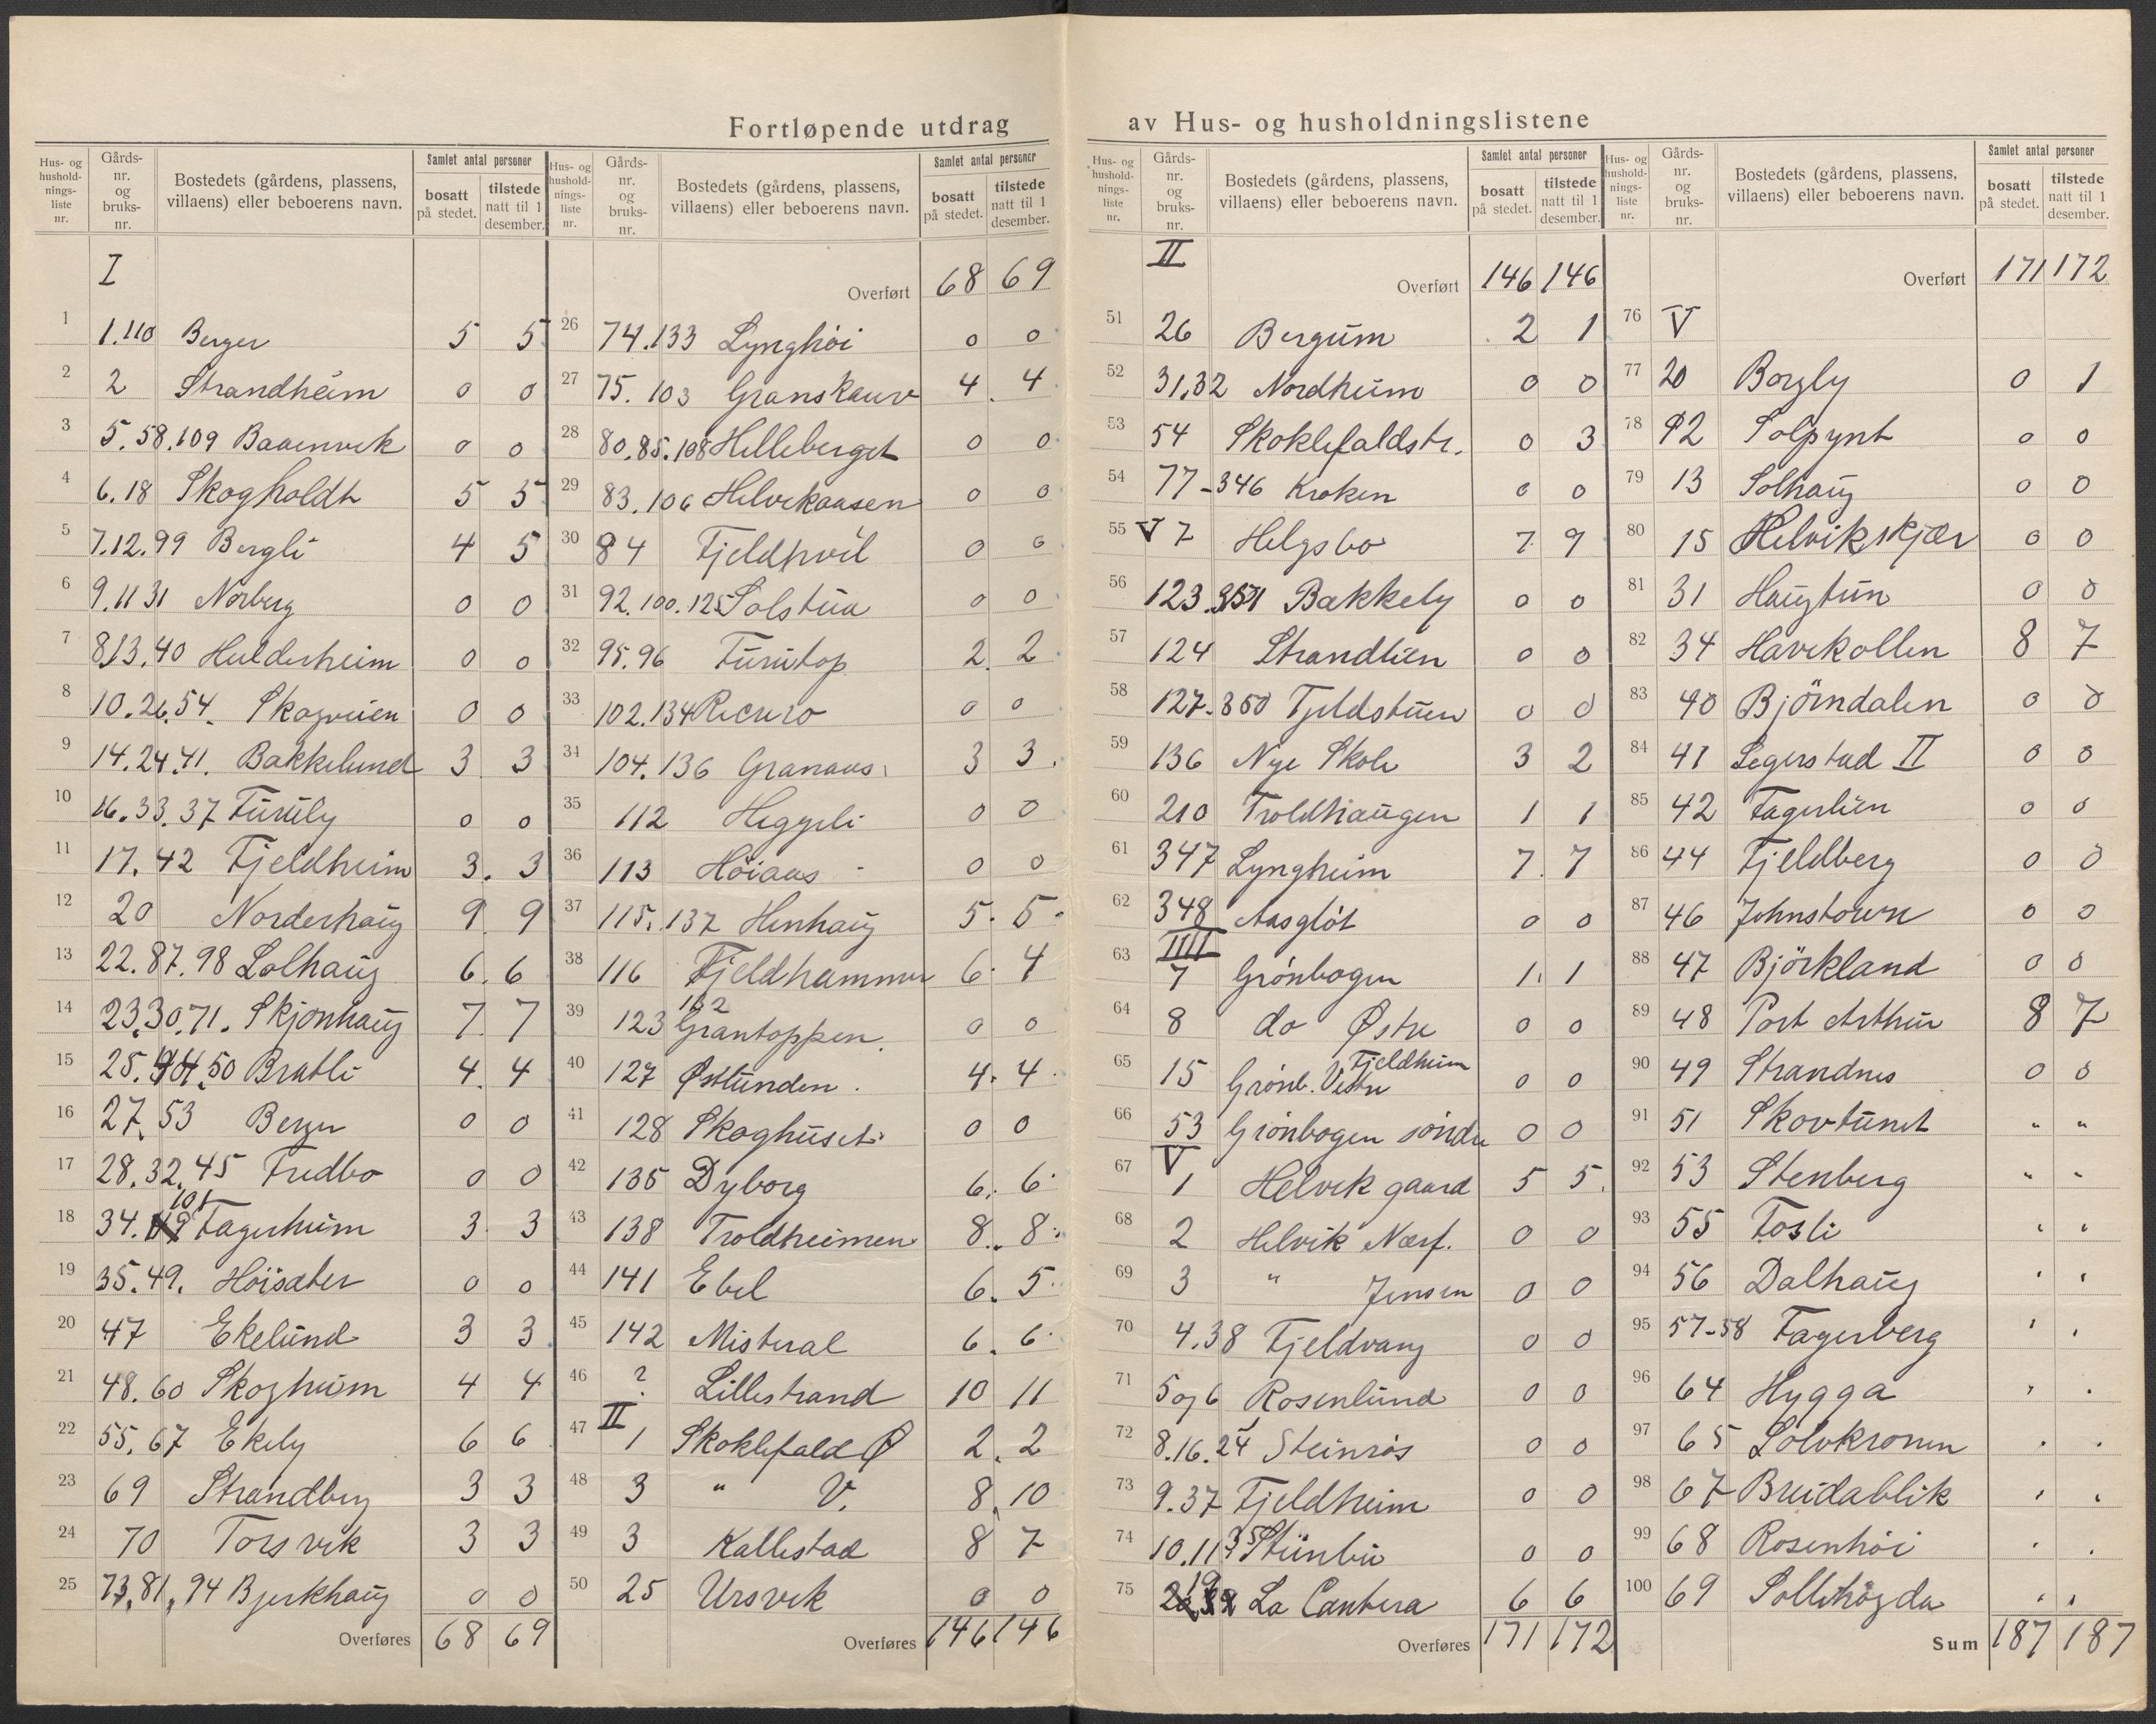 Fortløpende utdrag av Hus- og husholdningslistene
Hus- og hushold-nings-liste nr. | Gårds-nr. og bruks-nr. | Bostedets (gårdens, plassens, villaens) eller beboerens navn. | Samlet antal personer | bosatt på stedet. | tilstede natt til 1 desember.
I
1 1.110 Berger 5 5
2 2 Strandheim 0 0
3 5.58.109 Baaenvik 0 0
4 6.18 Skogholdt 5 5
5 7.12.99 Bergli 4 5
6 9.11 31 Norberg 0 0
7 8.13.40 Hulderheim 0 0
8 10.26.54. Skogveien 0 0
9 14.24.41. Bakkelund 3 3
10 16.33.37 Furuly 0 0
11 17.42 Fjeldheim 3. 3
12 20 Norderhaug 9 9
13 22.87.98 Solhaug 6. 6
14 23.30.71. Skjønhaug 7. 7
15 25. 50 Bratli 4. 4
16 27.53 Berger 0 0
17 28.32.45 Fredbo 0 0
18 34. 101 Fagerheim 3. 3
19 35.49. Höisæter 0 0
20 47 Ekelund 3 3
21 48.60 Skogheim 4 4
22 55.67 Ekely 6 6
23 69 Strandberg 3 3
24 70 Torsvik 3 3
25 73.81.94 Bjerkhaug 0 0
Overføres 68 69
Hus- og hushold-nings-liste nr. | Gårds-nr. og bruks-nr. | Bostedets (gårdens, plassens, villaens) eller beboerens navn. | Samlet antal personer | bosatt på stedet. | tilstede natt til 1 desember.
Overført 68 69
26 74.133 Lynghöi 0 0
27 75.103 Granskauv 4. 4
28 80.85.108 Helleberget 0 0
29 83.106 Helvikaasen 0 0
30 84 Fjeldhvil 0 0
31 92.100.125 Solstua 0 0
32 95.96 Furutop 2. 2
33 102.134 0 0
34 104.136 Granaas 3 3.
35 112 Heggeli 0 0
36 113 Höiaas 0 0
37 115.137 Henhaug 5. 5.
38 116 Fjeldhammer 6. 4
39 123 132 Grantoppen. 0 0
40 127 Østlunden. 4. 4.
41 128 Skoghuset 0 0
42 135 Dyborg 6. 6.
43 138 Troldheimen 8. 8.
44 141 Ebel 6. 5.
45 142 Misteral 6. 6.
46 ? Lillestrand 10 11
47 II 1 Skoklefald Ø 2. 2
48 3 " V. 8. 10
49 3 Kallestad 8 7
50 25 Ursvik 0 0
Overføres 146 146
Hus- og hushold-nings-liste nr. | Gårds-nr. og bruks-nr. | Bostedets (gårdens, plassens, villaens) eller beboerens navn. | Samlet antal personer | bosatt på stedet. | tilstede natt til 1 desember.
II Overført 146 146
51 26 Bergum 2 1
52 31.32 Nordheim 0 0
53 54 Skoklefaldstr. 0 3
54 77-346 Kroken 0 0
55 V 7 Helgsbo 7. 9
56 123.351 Bakkely 0 0
57 124 Strandlien 0 0
58 127-350 Fjeldstuen 0 0
59 136 Nye Skole 3 2
60 210 Troldhaugen 1 1
61 347 Lyngheim 7. 7
62 348 Aasgløt 0 0
63 IIII 7 Grönbogen 1. 1
64 8 do Østre 0 0
65 15 Grønb. Vestre Fjeldheim 0 0
66 53 Grönbogen söndre 0 0
67 V 1 Helvik gaard 5 5.
68 2 Helvik Næsf. 0 0
69 3 " Jensen 0 0
70 4.38 Fjeldvang 0 0
71 5 og 6 Rosenlund 0 0
72 8.16.24 Steinrös 0 0
73 9.37 Fjeldheim 0 0
74 10.11 35 Stuinbu 0 0
75 19 La Cantera 6 6
Overføres 171 172
Hus- og hushold-nings-liste nr. | Gårds-nr. og bruks-nr. | Bostedets (gårdens, plassens, villaens) eller beboerens navn. | Samlet antal personer | bosatt på stedet. | tilstede natt til 1 desember.
Overført 171 172
76 V
77 20 Borgly 0 1
78 12 Solpynt 0 0
79 13 Solhaug 0 0
80 15 Helvikskjær 0 0
81 31 Haugtun 0 0
82 34 Havikollen 8 7
83 40 Björndalen 0 0
84 41 Segerstad II 0 0
85 42 Fagerlien 0 0
86 44 Fjeldberg 0 0
87 46 Johnstown 0 0
88 47 Björkland 0 0
89 48 Port Arthur 8 7
90 49 Strandnes 0 0
91 51 Skovtunet " "
92 53 Stenberg " "
93 55 Fosli " "
94 56 Dalhaug " "
95 57-58 Fagerberg " "
96 64 Hygga " "
97 65 Solvkronen " "
98 67 Breidablik " "
99 68 Rosenhöi " "
100 69 Sollihögda " "
Sum 187 187